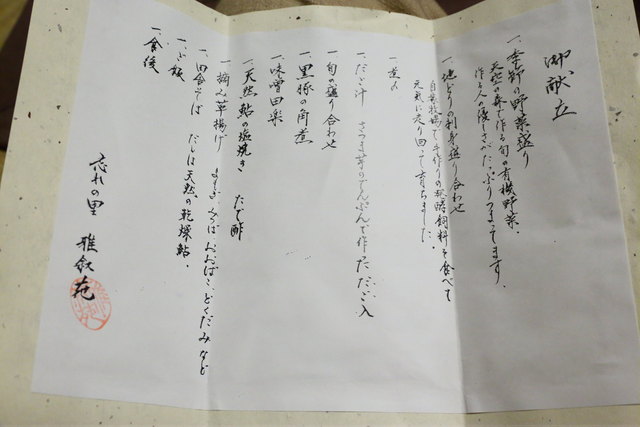 御献立
一、季節の野菜盛り
天然の森で作る旬の有機野菜、
作る人の優しさがたっぷりつまってます。
一、地どりの刺身盛り合わせ
自家牧場で手作りの発酵飼料を食べて
元気に走り回って育ちました。
一、煮〆
一、だご汁 さつま芋のでんぷんで作っただご入
一、旬の盛り合わせ
一、黒豚の角煮
一、味噌田楽
一、天然鮎の塩焼き たで酢
一、摘み草揚げ よもぎ、みつば、おおばこ、どくだみなど
一、田舎そば だしは天然の乾燥鮎、
一、ご飯
一、食後
忘れの里 雅叙苑